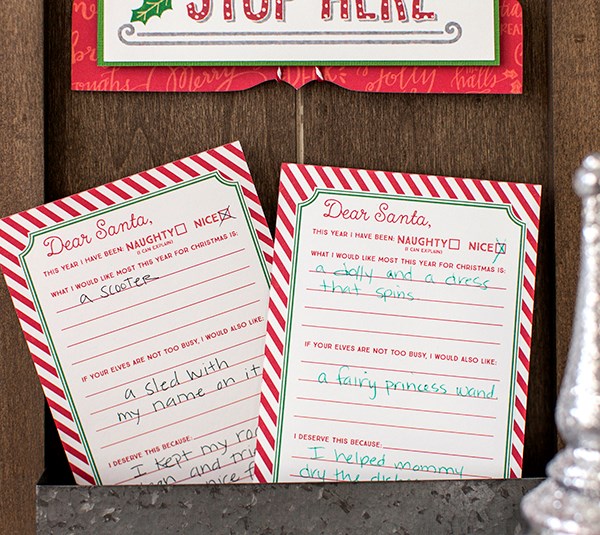 STOP HERE
Merry
Jolly
Dear Santa,
THIS YEAR I HAVE BEEN: NAUGHTY NICE
(I CAN EXPLAIN)
WHAT I WOULD LIKE MOST THIS YEAR FOR CHRISTMAS IS:
a scooter
IF YOUR ELVES ARE NOT TOO BUSY, I WOULD ALSO LIKE:
a sled with
my name on it
I DESERVE THIS BECAUSE:
I kept my
and
Dear Santa,
THIS YEAR I HAVE BEEN: NAUGHTY NICE
(I CAN EXPLAIN)
WHAT I WOULD LIKE MOST THIS YEAR FOR CHRISTMAS IS:
a dolly and a dress
that spins
IF YOUR ELVES ARE NOT TOO BUSY, I WOULD ALSO LIKE:
a fairy princess wand
I DESERVE THIS BECAUSE:
I helped mommy
dry the